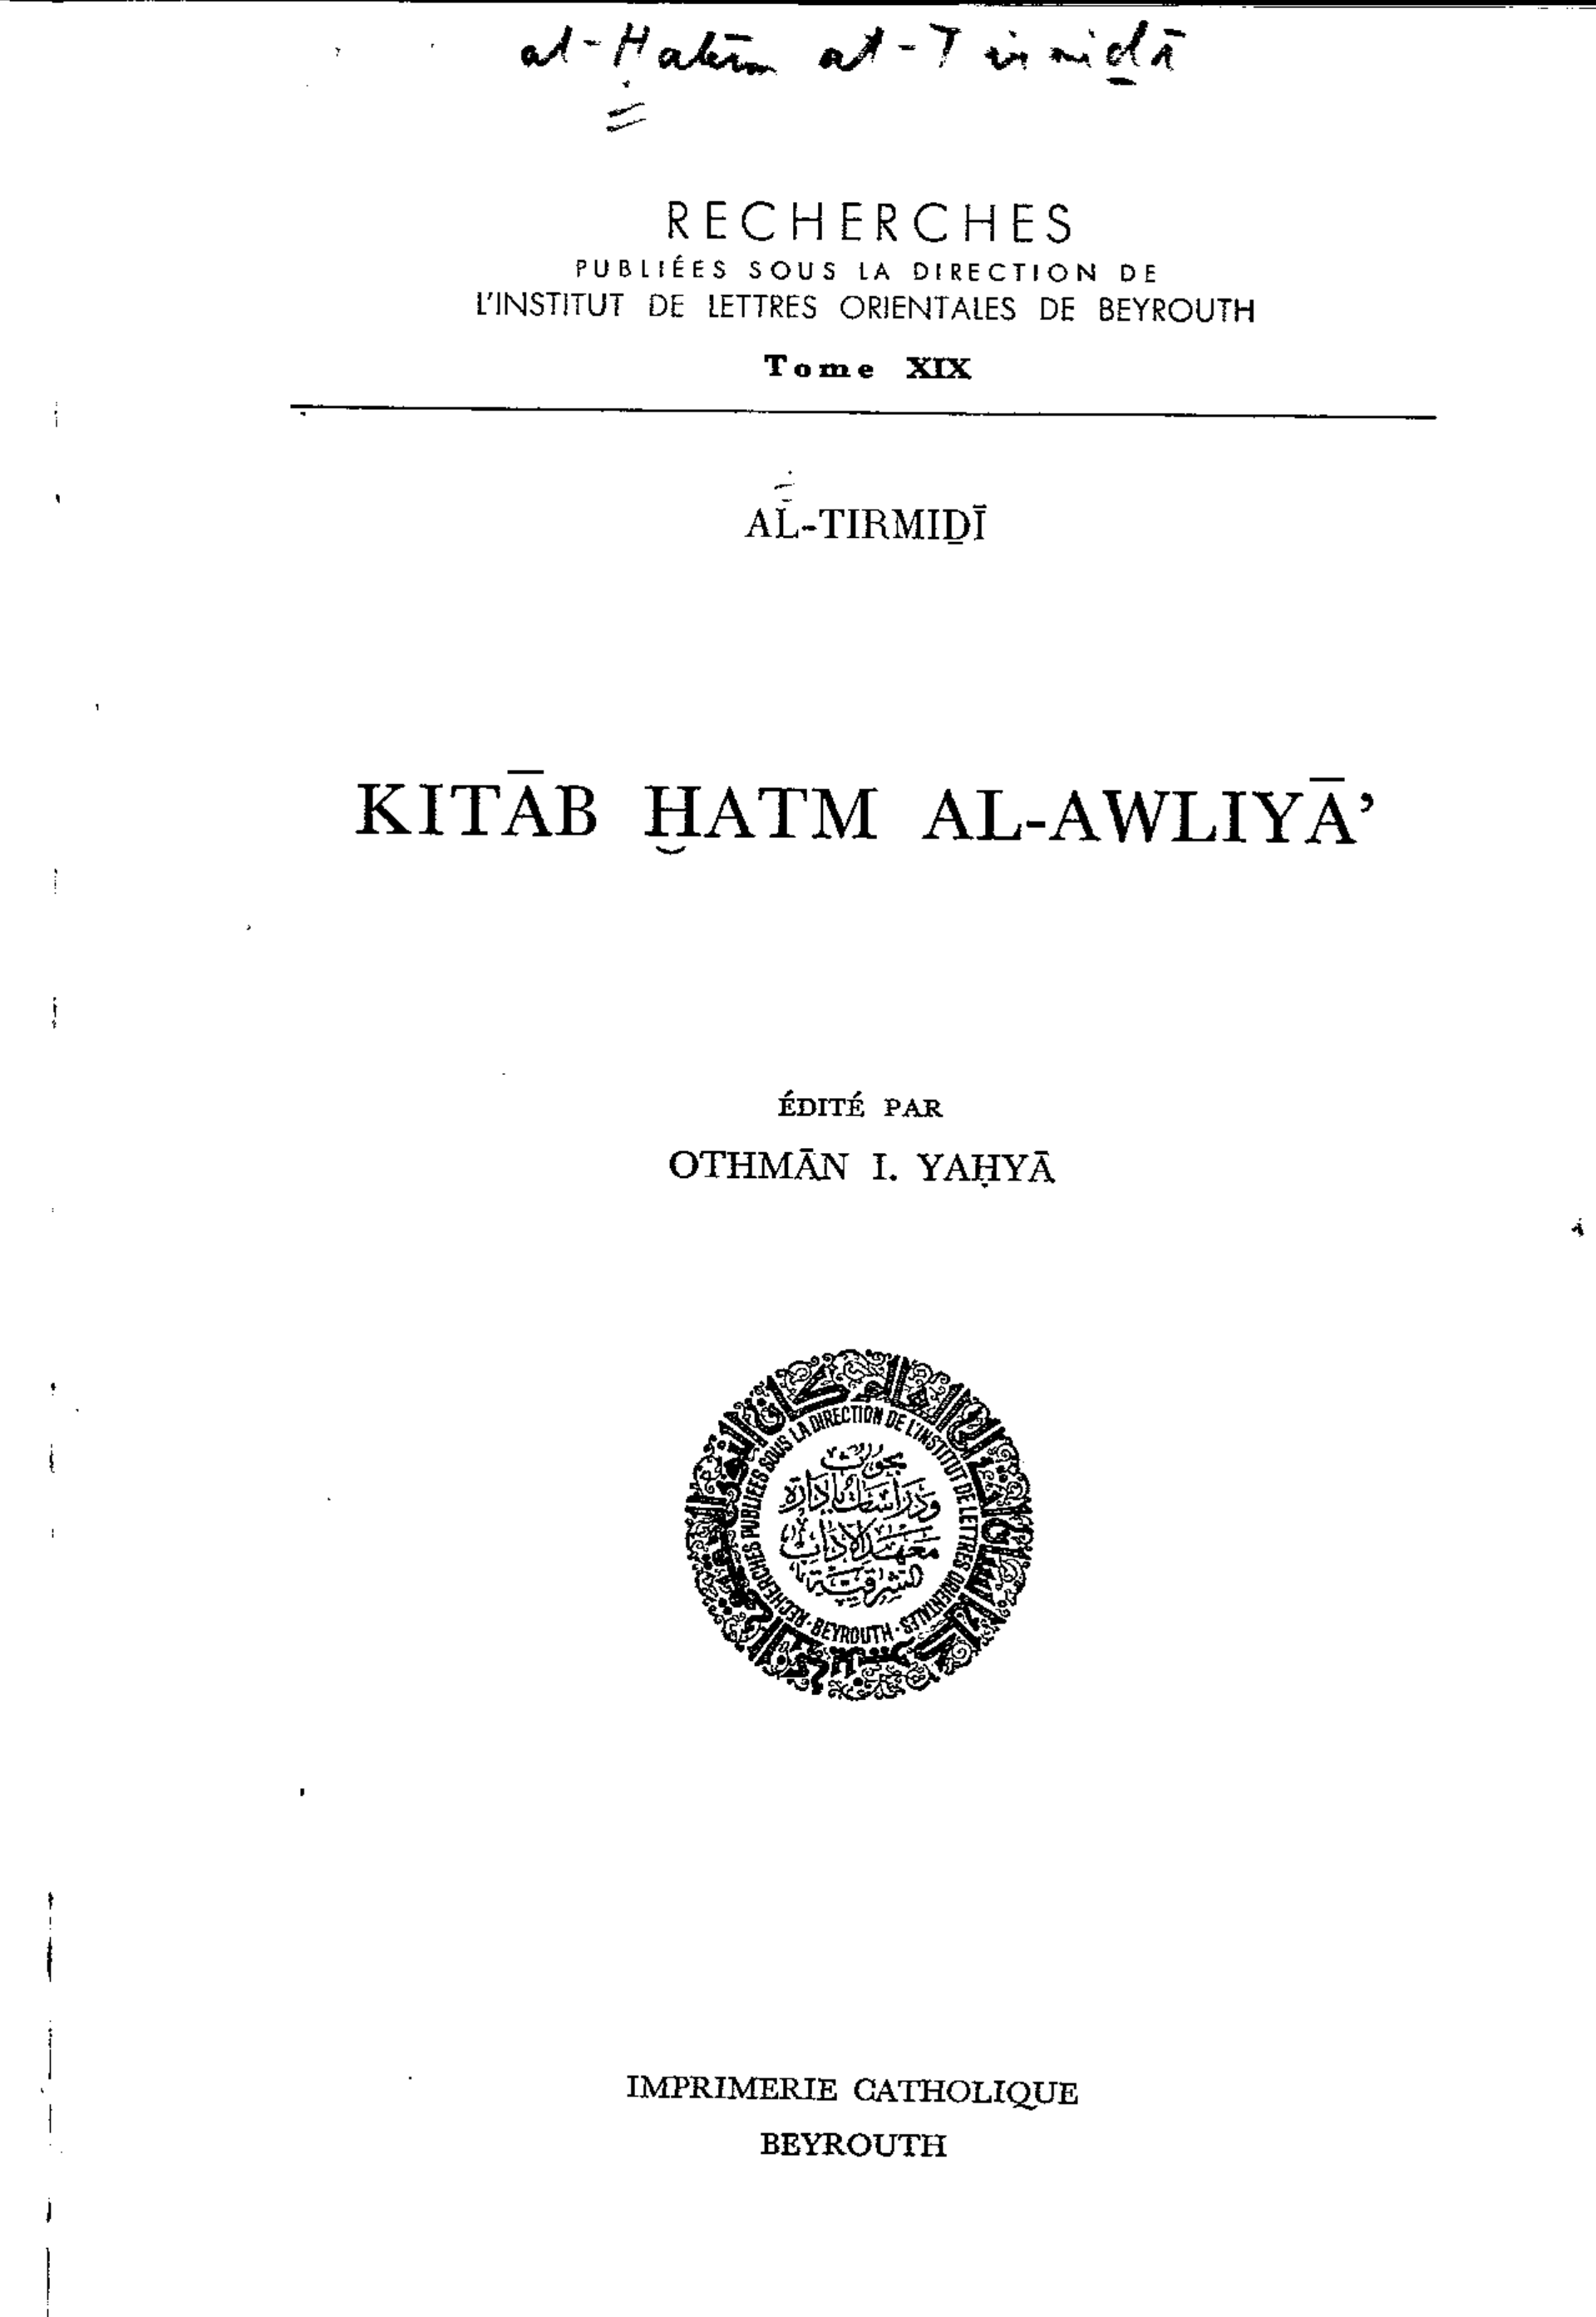 al-Ḥakīm at-Tirmiḏī
RECHERCHES
PUBLIÉES SOUS LA DIRECTION DE
L'INSTITUT DE LETTRES ORIENTALES DE BEYROUTH
Tome XIX
AL-TIRMIḎĪ
KITĀB ḪATM AL-AWLIYĀ’
ÉDITÉ PAR
OTHMĀN I. YAḤYĀ
RECHERCHES PUBLIÉES SOUS LA DIRECTION DE L'INSTITUT DE LETTRES ORIENTALES · BEYROUTH ·
بحوث
ودراسات بادارة
معهد الآداب
الشرقية
IMPRIMERIE CATHOLIQUE
BEYROUTH